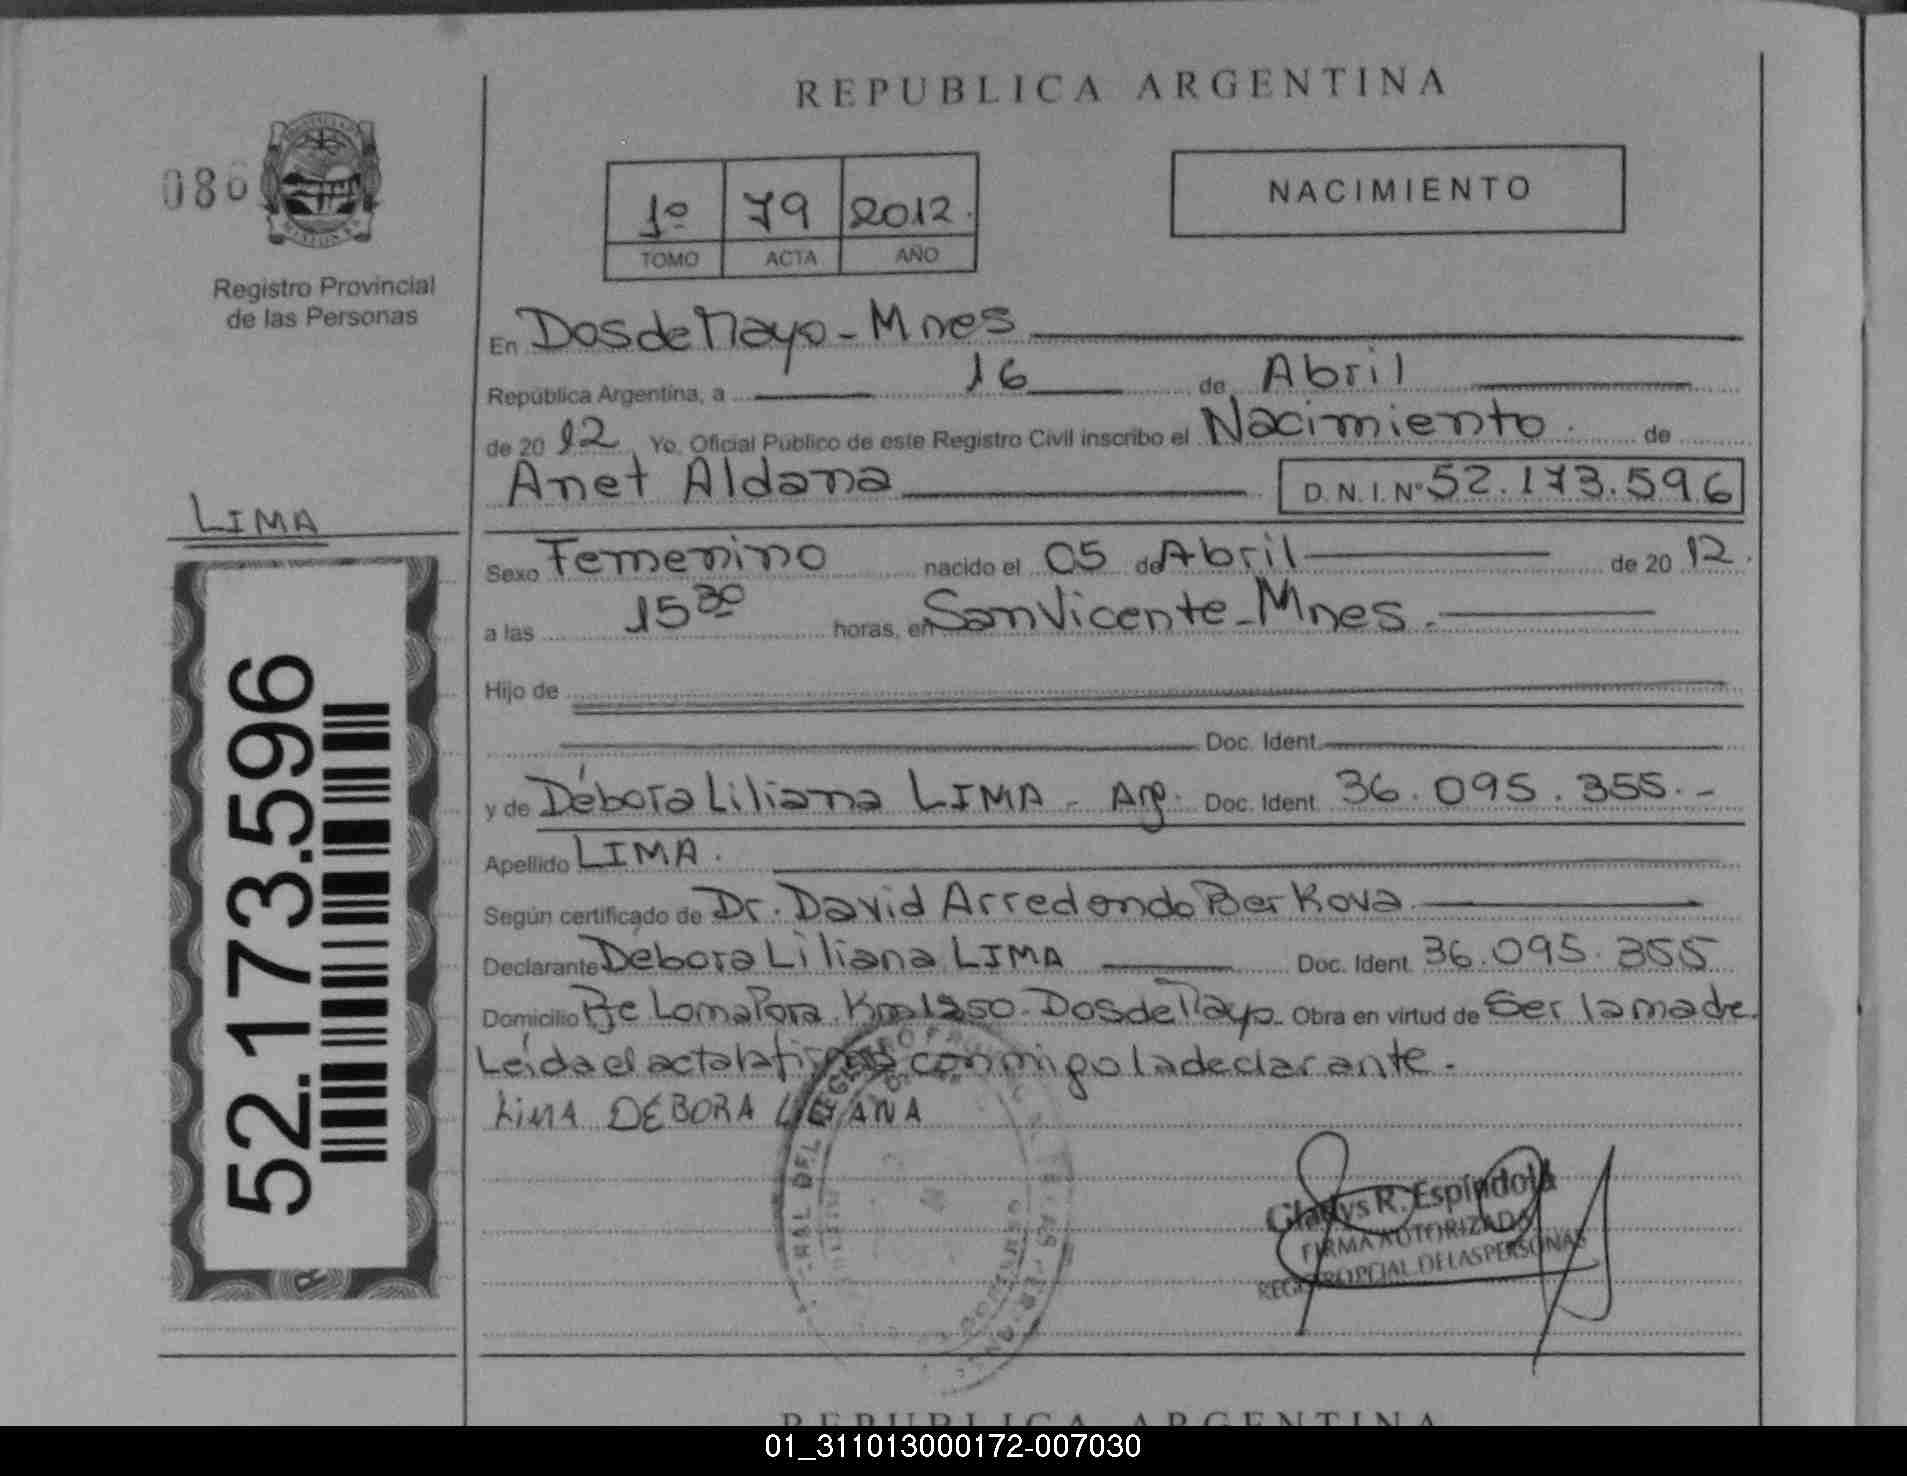 REPUBLICA ARGENTINA
086
Registro Provincial
de las Personas
1º 79 2012.
TOMO ACTA AÑO
NACIMIENTO
En Dos de Mayo - Mnes
República Argentina, a 16 de Abril
de 20 12 Yo, Oficial Público de este Registro Civil inscribo el Nacimiento. de
Anet Aldana D.N.I. Nº 52.173.596
LIMA
Sexo Femenino nacido el 05 de Abril de 20 12.
a las 15 30 horas, en San Vicente - Mnes.
Hijo de
Doc. Ident.
y de Débora Liliana LIMA - Arg. Doc. Ident. 36.095.355.-
Apellido LIMA.
Según certificado de Dr. David Arredondo Berkova
Declarante Debora Liliana LIMA Doc. Ident. 36.095.355
Domicilio Pje Loma Pora Km 1250 - Dos de Mayo. Obra en virtud de Ser la madre.
Leída el acta la firma conmigo la declarante.
LiMA DEBORA LILIANA
52.173.596
Gladys R. Espíndola
FIRMA AUTORIZADA
REGISTRO PCIAL. DE LAS PERSONAS
REPUBLICA ARGENTINA
01_311013000172-007030